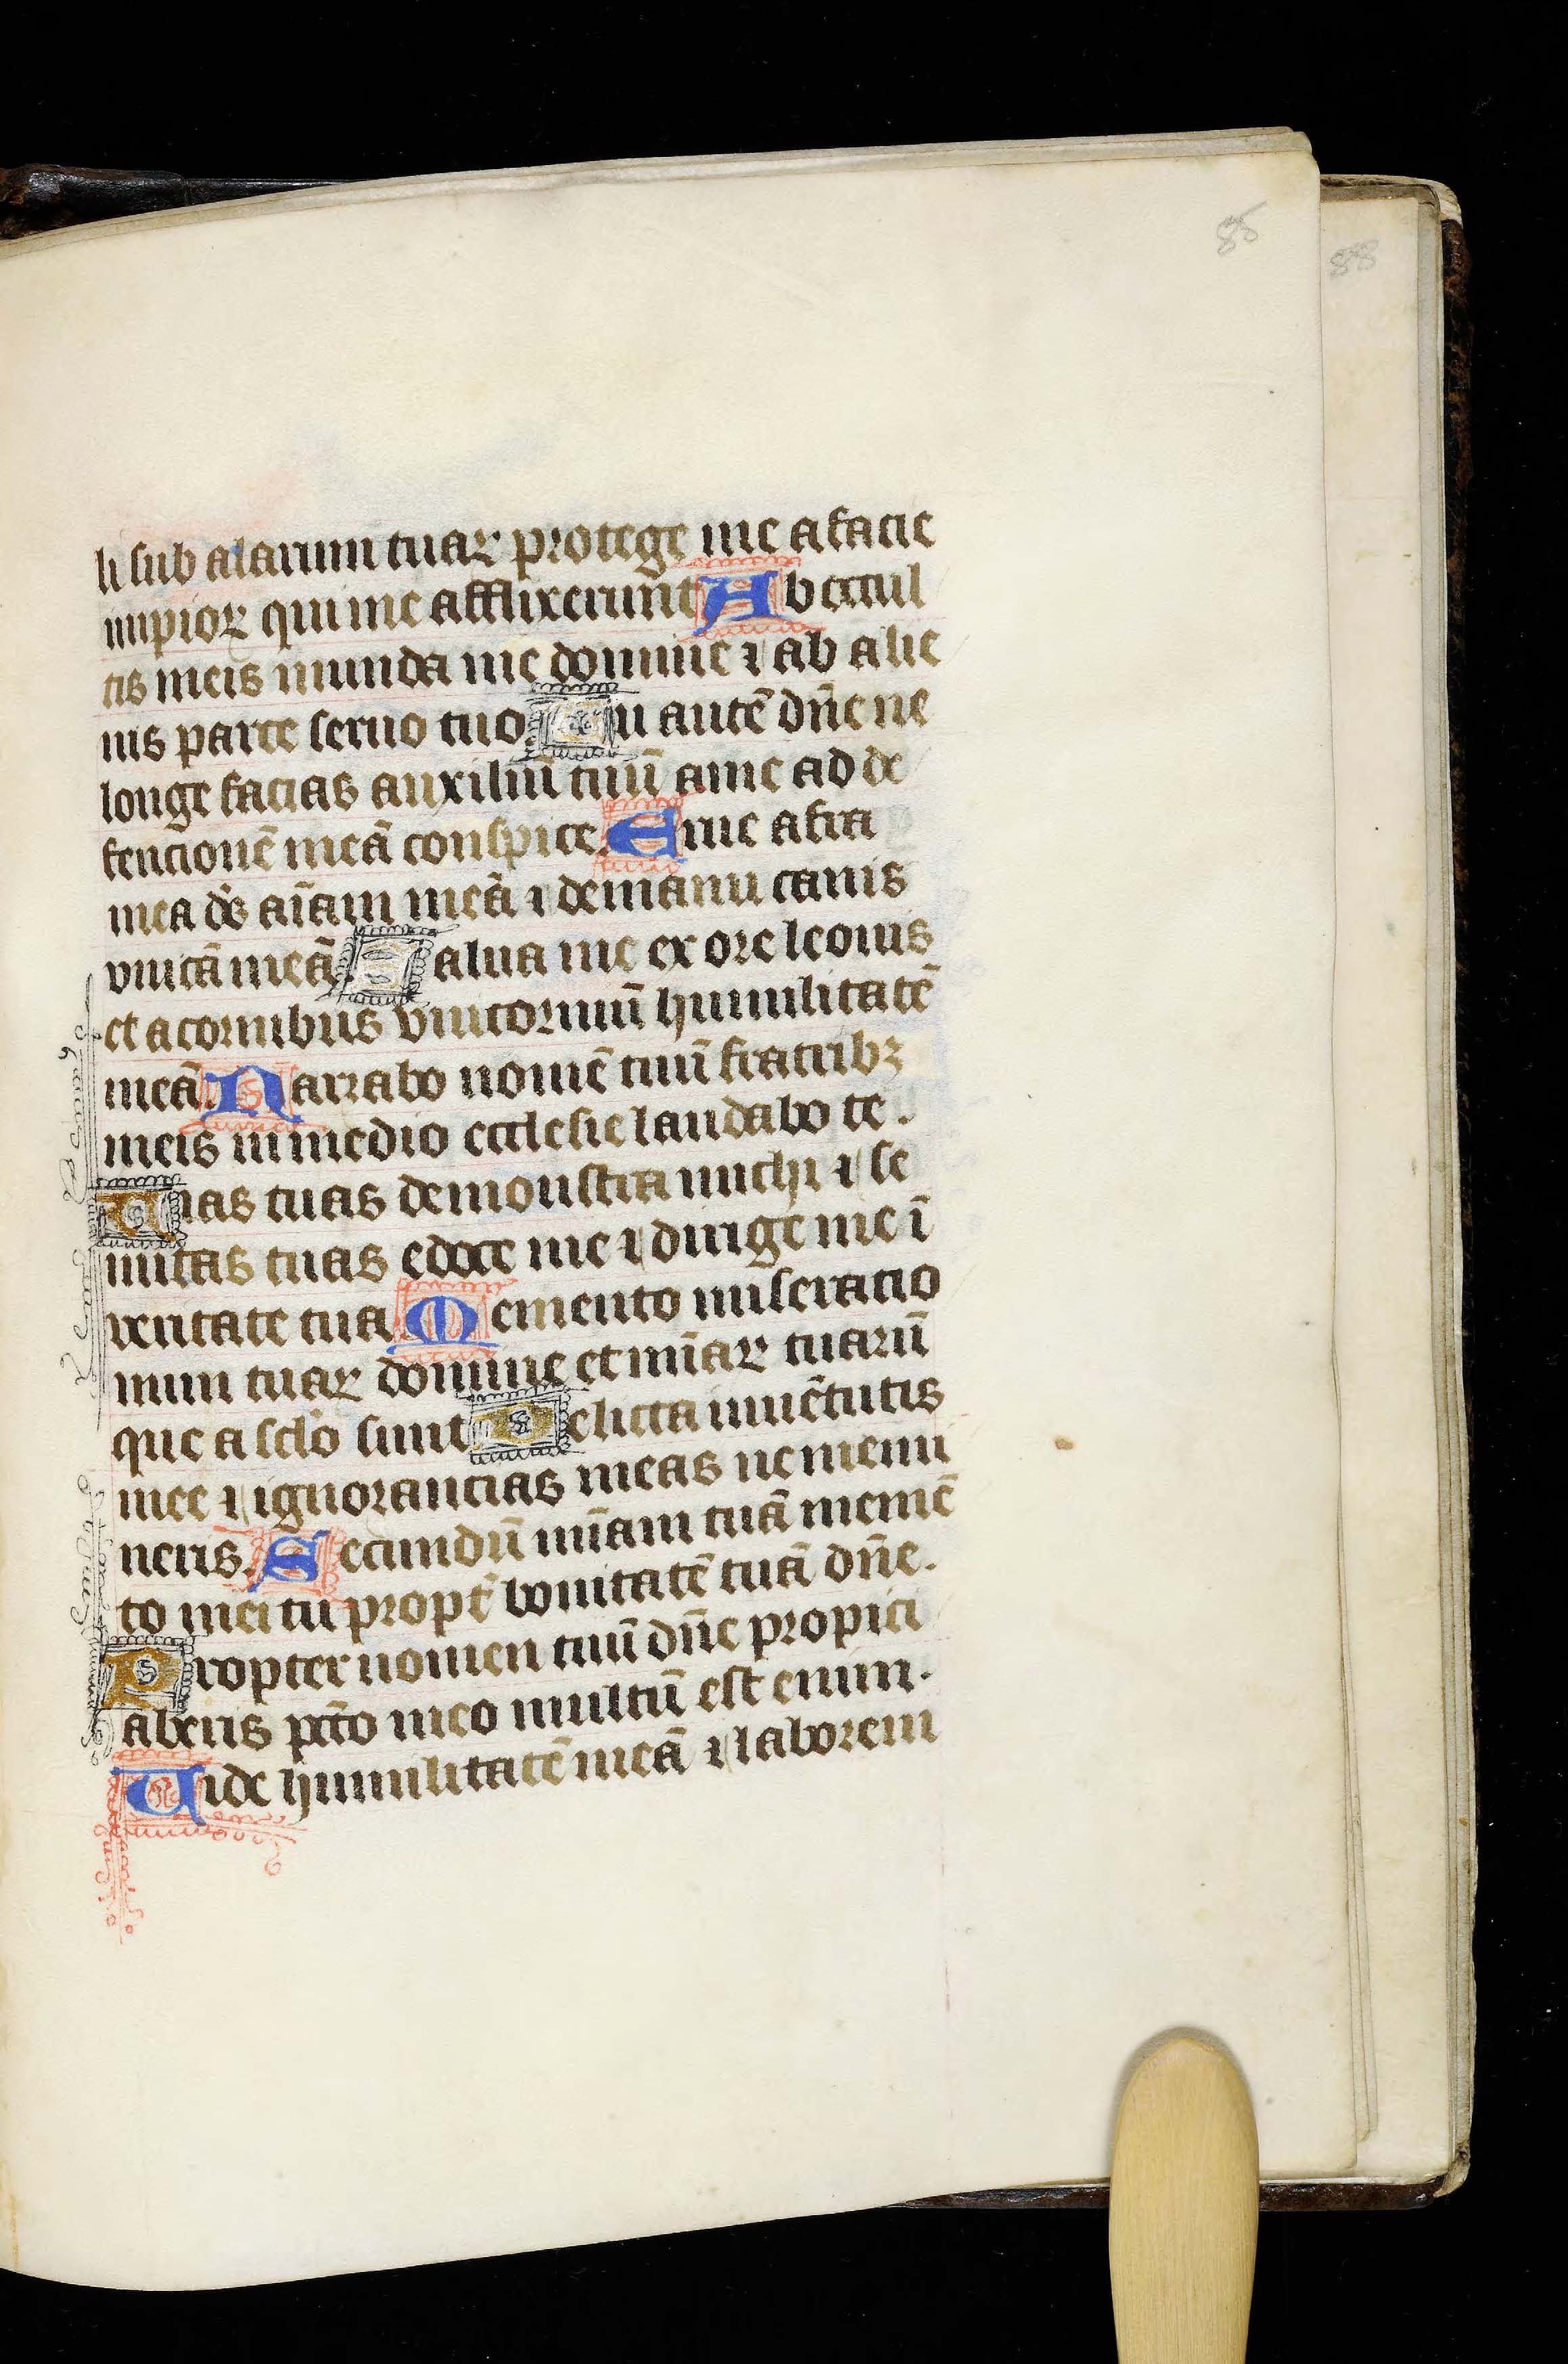 86
88
li sub alarum tuaꝝ protege me a facie
impioꝝ qui me afflixerunt Ab occul
tis meis munda me domine ⁊ ab alie
nis parce seruo tuo. Tu autē dn̄e ne
longe facias auxiliū tuū a me ad de
fencionē meā conspice. Erue a fra
mea dẽ aīam meā ⁊ de manu canis
vnicā meā. Salua me ex ore leonis
et a cornibus vnicorniū humilitatē
meā. Narrabo nomē tuū fratribꝫ
meis in medio ecclesie laudabo te.
Uias tuas demonstra michi ⁊ se
mitas tuas edoce me ⁊ dirige me ī
veritate tua Memento miseracio
num tuaꝝ domine et mīaꝝ tuarū
que a sclo sunt Delicta iuuētutis
mee ⁊ ignorancias meas ne memi
neris. Secundū mīam tuā memē
to mei tu propt̄ bonitatē tuā dn̄e.
Propter nomen tuū dn̄e propici
aberis pctō meo multū est enim.
Uide humilitatē meā ⁊ laborem